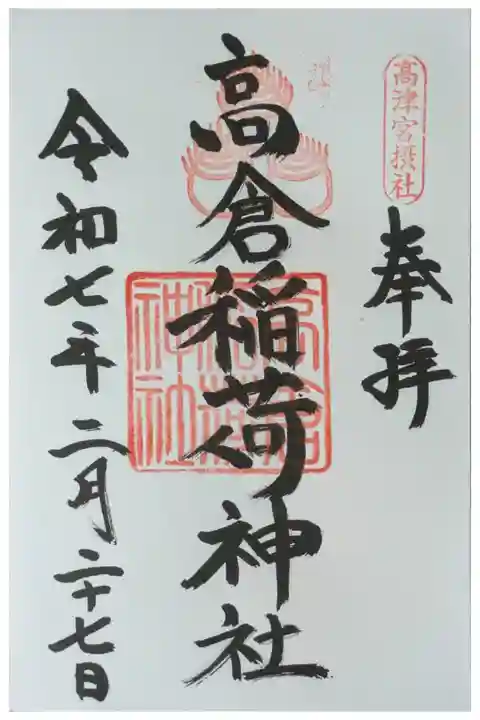 高津宮摂社
奉拝
高倉稲荷神社
令和七年二月二十七日